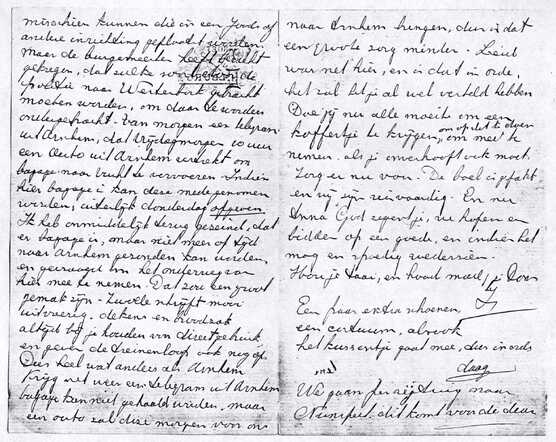 misschien kunnen die in een Joods of
andere inrichting geplaatst worden.
Maar de burgemeester heeft bericht
gekregen, dat zulke
naar Westerbork gebracht
moeten worden, om daar te worden
ondergebracht. Van morgen een telegram
uit Arnhem, dat Vrijdagmorgen 10 uur
een Auto uit Arnhem vertrekt om
bagage naar Vught te vervoeren. Indien
hier bagage is kan deze medegenomen
worden, uiterlijk donderdag opgeven
Ik heb onmiddelijk terug geseind, dat
er bagage is, maar niet meer op tijd
naar Arnhem gezonden kan worden,
en gevraagd om het onderweg van
hier mee te nemen. Dat zou een groot
gemak zijn. Zwolle schrijft mooi
uitvoerig. dekens en broodzak
altijd bij je houden van direct gebruik,
en geeft de treinenloop ook nog op
Dus heel wat anders als Arnhem
Krijg net weer een telegram uit Arnhem
bagage kan niet gehaald worden, maar
een auto zal deze morgen van ons
naar Arnhem brengen, dus is dat
een groote zorg minder.
was net hier, en is dat in orde,
het zal hij je al wel verteld hebben
Doe jij nu alle moeite om een
koffertje te krijgen, om op het te
om mee te
nemen. als je onverhoopt ook moet.
Zorg er nu voor. De boel is gepakt
en wij zijn reisvaardig. En nu
Anna God zegent je, we hopen en
bidden op een goede, en indien het
mag en spoedig wederzien.
Hoor je taai, en houd moed,
Een paar extra schoenen,
een ceintuur, al ook
het kussentje gaat mee, dus in orde
daag
We gaan per rijtuig naar
Nunspeet. dit komt voor de deur